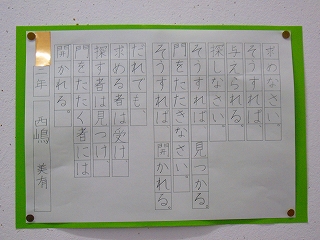 求めなさい。
そうすれば、
与えられる。
探しなさい。
そうすれば、見つかる。
門をたたきなさい。
そうすれば、開かれる。
だれでも、
求める者は受け
探す者は見つけ
門をたたく者には
開かれる。
二年 西嶋 美有